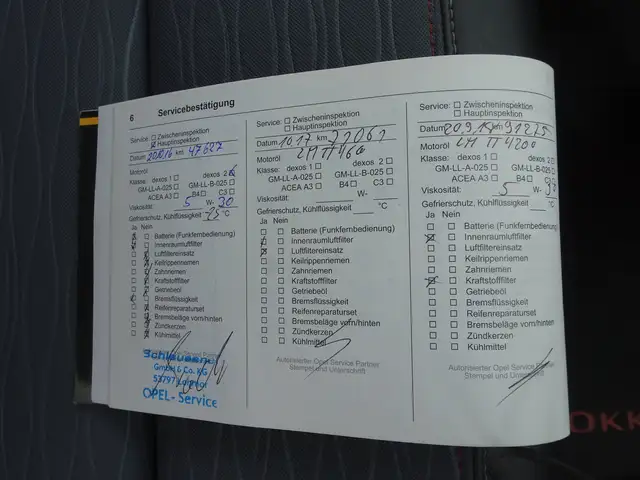 6
Servicebestätigung
Service: ☐ Zwischeninspektion
☒ Hauptinspektion
Datum km 47627
Motoröl
Klasse: dexos 1 ☐ dexos 2 ☒
GM-LL-A-025 ☐ GM-LL-B-025 ☐
ACEA A3 ☐ B4 ☐ C3 ☐
Viskosität: 5 W- 30
Gefrierschutz, Kühlflüssigkeit °C
Ja Nein
Batterie (Funkfernbedienung)
Innenraumluftfilter
Luftfiltereinsatz
Keilrippenriemen
Zahnriemen
Kraftstofffilter
Getriebeöl
Bremsflüssigkeit
Reifenreparaturset
Bremsbeläge vorn/hinten
Zündkerzen
Kühlmittel
GmbH & Co. KG
53797 Lohmar
OPEL - Service
Service: ☐ Zwischeninspektion
☐ Hauptinspektion
Datum 10 17 km
Motoröl
Klasse: dexos 1 ☐ dexos 2 ☐
GM-LL-A-025 ☐ GM-LL-B-025 ☐
ACEA A3 ☐ B4 ☐ C3 ☐
Viskosität: W-
Gefrierschutz, Kühlflüssigkeit °C
Ja Nein
Batterie (Funkfernbedienung)
Innenraumluftfilter
Luftfiltereinsatz
Keilrippenriemen
Zahnriemen
Kraftstofffilter
Getriebeöl
Bremsflüssigkeit
Reifenreparaturset
Bremsbeläge vorn/hinten
Zündkerzen
Kühlmittel
Autorisierter Opel Service Partner
Stempel und Unterschrift
Service: ☐ Zwischeninspektion
☐ Hauptinspektion
Datum km
Motoröl 4200
Klasse: dexos 1 ☐ dexos 2 ☐
GM-LL-A-025 ☐ GM-LL-B-025 ☐
ACEA A3 ☐ B4 ☐ C3
Viskosität: 5 W- 30
Gefrierschutz, Kühlflüssigkeit
Ja Nein
Batterie (Funkfernbedienung)
Innenraumluftfilter
Luftfiltereinsatz
Keilrippenriemen
Zahnriemen
Kraftstofffilter
Getriebeöl
Bremsflüssigkeit
Reifenreparaturset
Bremsbeläge vorn/hinten
Zündkerzen
Kühlmittel
Autorisierter Opel Service Partner
Stempel und Unterschrift
OKK